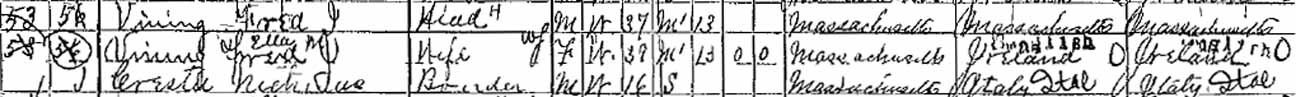 53 56 Vining Fred J Head H M W 37 M1 13 Massachusetts Massachusetts Massachusetts
Vining Ella M Wife wf F W 39 M1 13 0 0 Massachusetts Ireland English 0 Ireland English 0
1 1 Cresta Boarder M W 16 S Massachusetts Italy Ital Italy Ital